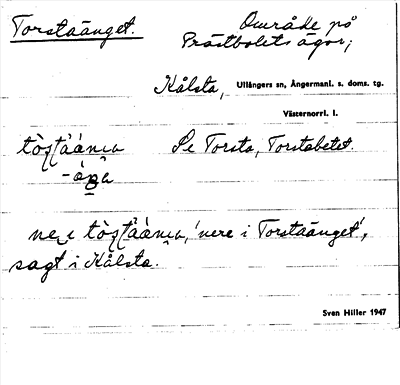 Torstaänget.
Område på
Prästbolets ägor;
Kålsta, Ullångers sn, Ångermanl. s. doms. tg.
Västernorrl. l.
Se Torsta, Torstabetet.
'nere i Torstaänget',
sagt i Kålsta.
Sven Hiller 1947